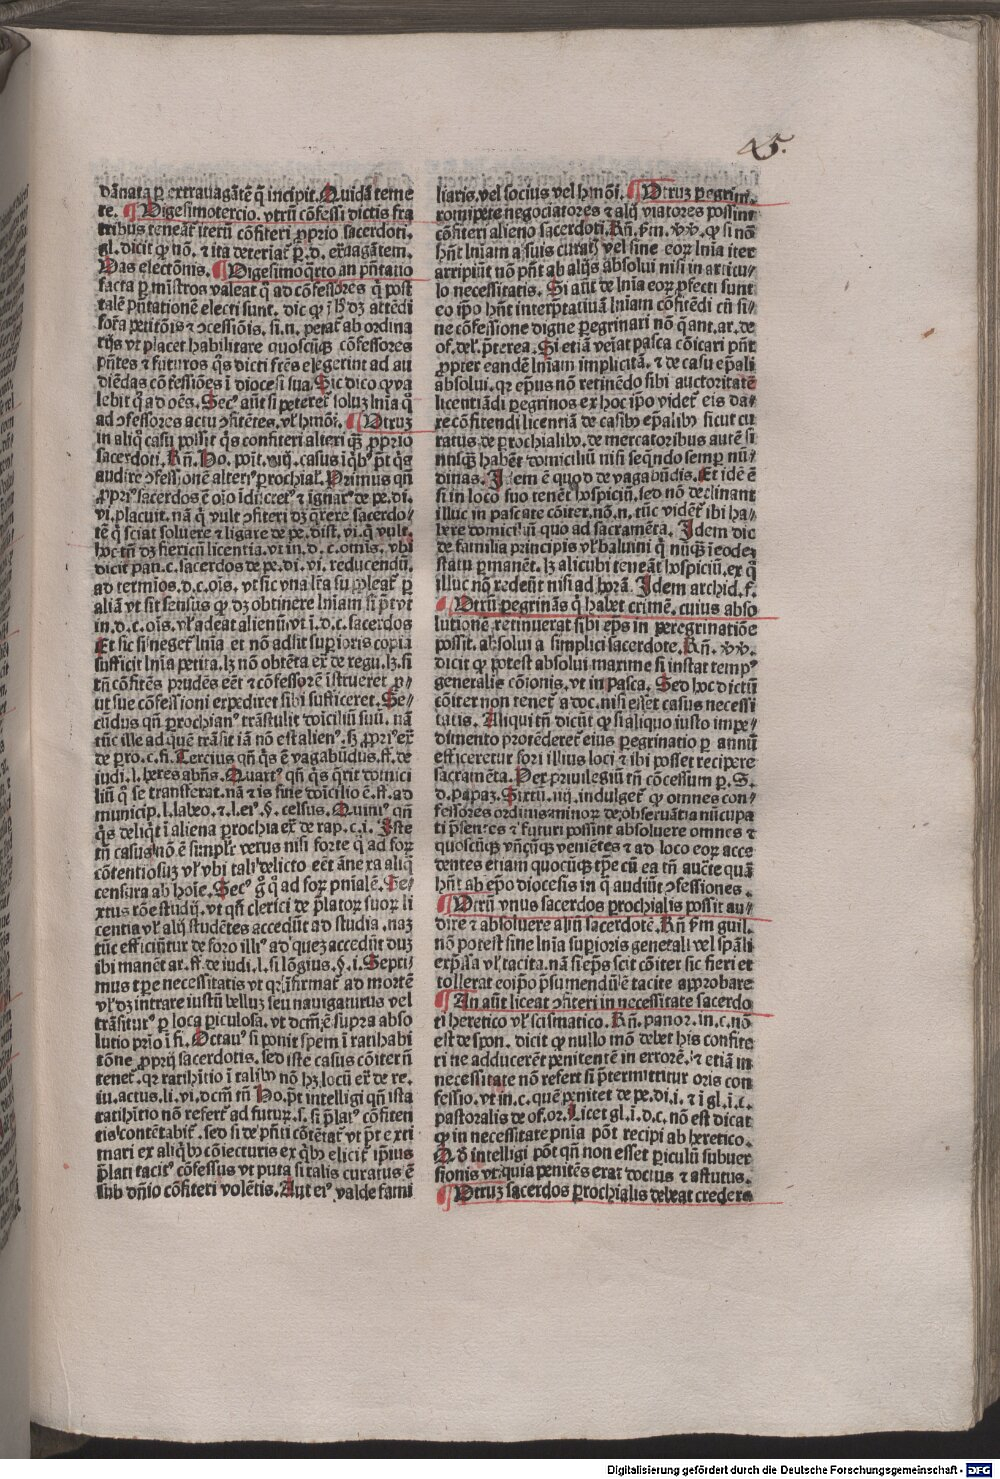 45.
dānata ꝑ extrauagātē q̄ incipit. Quidā teme
re. ¶ Uigesimotercio. vtrū cōfessi dictis fra
tribus teneāt̉ iterū cōfiteri ꝓprio sacerdoti.
gl. dicit ꝙ nō. ⁊ ita deteriat̉ ꝑ .d. ex̄uagātem.
Uas electōnis. ¶ Uigesimoq̄rto an p̄ntatio
facta ꝑ mīstros valeat q̄ ad cōfessores q̄ post
talē p̄ntationē electi sunt. dic ꝙ ī h̄ dꝫ attēdi
forā petitōis ⁊ ↄcessiōis. si .n. petat̉ ab ordina
rijs vt placet habilitare quoscūqꝫ cōfessores
p̄ntes ⁊ futuros q̄s dicti fr̄es elegerint ad au
diēdas cōfessiōes ī diocesi sua. Sic dico ꝙ va
lebit q̄ ad oēs. Sec᷒ aūt si peteret̉ soluꝫ lnīa q̄
ad ↄfessores actu ↄfitētes. vl̓ hmōi. ¶ Utruꝫ
in aliq̄ casu possit q̄s confiteri alteri q̄ꝫ ꝓprio
sacerdoti. Rn̄. Ho. poīt .viij. casus ī q̄bꝰ p̄t q̄s
audire ↄfessionē alteri᷒ ꝑrochial̓. Primus qn̄
ꝓpri᷒ sacerdos ē oīo īdiscret᷒ ⁊ ignar᷒ de pe. di.
vi. placuit. nā q̄ vult ↄfiteri dꝫ q̄rere sacerdo⸗
tē q̄ sciat soluere ⁊ ligare de pe. dist. vi. q̄ vult.
hoc tn̄ dꝫ fieri cū licentia. vt in .d. c. omīs. vbi
dicit pan. c. sacerdos de pe. di. vi. reducendū.
ad termīos .d. c. oīs. vt sic vna lr̄a suppleat̉ ꝑ
aliā vt sit sensus ꝙ dꝫ obtinere lnīam si p̄t vt
in .d. c. oīs. vl̓ adeat alienū. vt ī .d. c. sacerdos
Et sic si neget̉ lnīa et nō adsit suꝑioris copia
sufficit lnīa petita. lꝫ nō obtēta ex̄ de regu. lꝫ. si
tn̄ cōfitēs prudēs eēt ⁊ cōfessorē īstrueret ꝓ⸗
ut sue cōfessioni expediret sibi sufficeret. Se⸗
cūdus qn̄ ꝑrochian᷒ trāstulit doīciliū suū. nā
tūc ille ad quē trāsit iā nō est alien᷒. sꝫ ꝓpri᷒ ex̄
de ꝑro. c. fi. Tercius qn̄ q̄s ē vagabūdus. ff. de
iudi. l. heres abn̄s. Quart᷒ qn̄ q̄s q̄rit domici
liū q̄ se transferat. nā ⁊ is sine doīcilio ē. ff. ad
municip. l. labeo. ⁊ l. ei᷒. §. celsus. Quint᷒ qn̄
q̄s deliq̄t ī aliena ꝑrochia ex̄ de rap. c. i. Iste
tn̄ casus nō ē simplr̄ verus nisi forte q̄ ad for
cōtentiosuꝫ vl̓ vbi tali delicto eēt ānexa aliq̄
censura ab hoīe. Sec᷒ ḡ q̄ ad forꝫ pnīalē. Se⸗
xtus rōe studij. vt qn̄ clerici de p̄latorꝫ suorꝫ li
centia vl̓ alij studētes accedūt ad studia. naꝫ
tūc efficiūtur de foro illi᷒ ad quez accedūt duꝫ
ibi manēt ar. ff. de iudi. l. si lōgius. §. i. Septi⸗
mus tꝑe necessitatis vt qꝛ īfirmat̉ ad mortē
vl̓ dꝫ intrare iustū belluꝫ seu nauigaturus vel
trāsitur᷒ ꝑ loca ꝑiculosa. vt dcm̄ ē supra abso
lutio prio ī fi. Octau᷒ si ponit spem ī ratihabi
tōne ꝓprij sacerdotis. sed iste casus cōiter n̄
tenet̉. qꝛ ratihītio ī talibꝰ nō hꝫ locū ex̄ de re.
iu. actus. li. vi. dcm̄ tn̄ Ho. p̄t intelligi qn̄ ista
ratihītio nō refert̉ ad futurꝫ. s. si p̄lat᷒ cōfiteri
tis ↄtentabit̉. sed si de p̄nti cōtētat̉ vt p̄t exti
mari ex aliq̄bꝰ cōiecturis ex q̄bꝰ elicit̉ ip̄ius
p̄lati tacit᷒ cōsēsus vt puta si talis curatus ē
sub dn̄io cōfiteri volētis. Aut ei᷒ valde fami
liaris. vel socius vel hmōi. ¶ Utruꝫ peregrini.
romipete negociatores ⁊ alij viatores possint
cōfiteri alieno sacerdoti. Rn̄. ẜm. vv. ꝙ si nō
hn̄t lnīam a suis curatꝭ vel sine eorꝫ lnīa iter
arripiūt nō pn̄t ab alijs absolui nisi in articu⸗
lo necessitatis. Si aūt de lnīa eorꝫ ꝓfecti sunt
eo ipō hn̄t interptatiuā lnīam cōfitēdi cū si⸗
ne cōfessione digne peregrinari nō q̄ant. ar. de
of. del̓. p̄terea. Si etiā veīat pasca cōicari pn̄t
ꝓpter eandē lnīam implicitā. ⁊ de casu ep̄ali
absolui. qꝛ ep̄us nō retinēdo sibi auctoritatē
licentiādi peregrinos ex hoc ipō videt̉ eis da⸗
re cōfitendi licentiā de casibꝰ ep̄alibꝰ sicut cu
ratus de ꝑrochialibꝰ. de mercatoribus autē si
nusqꝫ habēt domiciliū nisi seq̄ndo semꝑ nū⸗
dinas. Idem ē quod de vagabūdis. Et idē ē
si in loco suo tenēt hospiciū. sed nō declinant
illuc in pascate cōiter. nō .n. tūc vidēt̉ ibi ha⸗
bere domiciliū quo ad sacramēta. Idem dic
de familia principis vl̓ baliuini q̄ nūqꝫ ī eodē
statu ꝑmanēt. lꝫ alicubi teneāt hospiciū. ex q̄
illuc nō redeūt nisi ad horā. Idem archid. f.
¶ Utrū peregrinās q̄ habet crimē. cuius abso
lutionē retinuerat sibi ep̄s in peregrinatiōe
possit. absolui a simplici sacerdote. Rn̄. vv.
dicit ꝙ potest absolui maxime si instat temp᷒
generalis cōionis. vt in pasca. Sed hoc dictū
cōiter non tenet̉ a doc. nisi esset casus necessi
tatis. Aliqui tn̄ dicūt ꝙ si aliquo iusto impe⸗
dimento protēderet̉ eius peregrinatio ꝑ annū
efficeretur fori illius loci ⁊ ibi posset recipere
sacramēta. Per priuilegiū tn̄ cōcessum ꝑ. S.
d. papaꝫ. Sixtū .iiij. indulget̉ ꝙ omnes con⸗
fessores ordinis minorꝫ de obseruātia nūcupa
ti p̄sentes ⁊ futuri possint absoluere omnes ⁊
quoscūqꝫ vn̄cūqꝫ veniētes ⁊ ad loco eorꝫ acce
dentes etiam quocūqꝫ tp̄e cū ea tn̄ aucte quā
hn̄t ab ep̄o diocesis in q̄ audiūt ↄfessiones.
¶ Utrū vnus sacerdos ꝑrochialis possit au⸗
dire ⁊ absoluere aliū sacerdotē. Rn̄ ẜm guil.
nō potest sine lnīa suꝑioris generali vel spāli
exp̄ssa vl̓ tacita. nā si ep̄s scit cōiter sic fieri et
tollerat eo ipō p̄sumendū ē tacite approbare
¶ An aūt liceat ↄfiteri in necessitate sacerdo
ti heretico vl̓ scismatico. Rn̄. panor. in. c. nō
est de spon. dicit ꝙ nullo mō debet his confite
ri ne adducerēt penitentē in errorē. ⁊ etiā in
necessitate nō refert si p̄termittitur oris con
fessio. vt in. c. quē penitet de pe. di. i. ⁊ ī gl. ī. c.
pastoralis de of. or. Licet gl. ī .d. c. nō est dicat
ꝙ in necessitate pnīa pōt recipi ab heretico.
Qđ intelligi pōt qn̄ non esset periculū subuer
sionis vt quia penitēs erat doctus ⁊ astutus.
¶ Utruꝫ sacerdos ꝑrochialis debeat credere
Digitalisierung gefördert durch die Deutsche Forschungsgemeinschaft - DFG